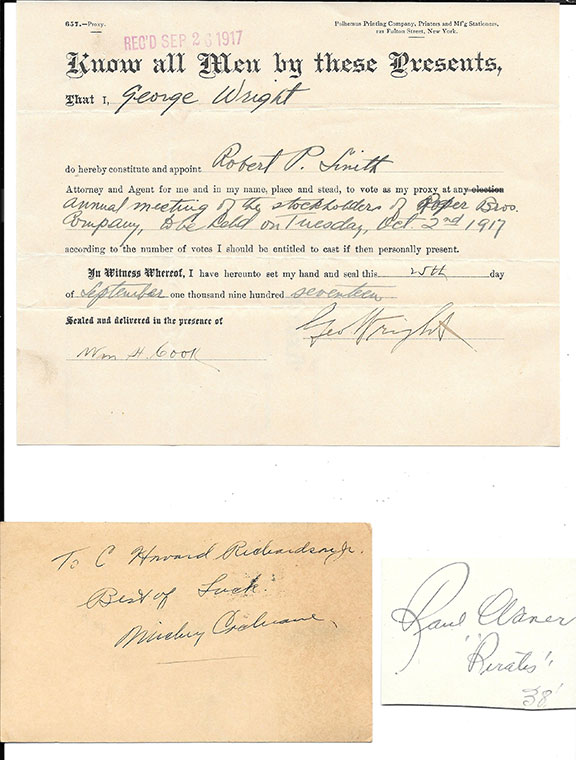 657.—Proxy.
Polhemus Printing Company, Printers and M'f'g Stationers,
121 Fulton Street, New York.
REC'D SEP 26 1917
Know all Men by these Presents,
That I, George Wright
do hereby constitute and appoint Robert P. Smith
Attorney and Agent for me and in my name, place and stead, to vote as my proxy at any election
annual meeting of the stockholders of Bros.
Company, to be held on Tuesday, Oct 2nd 1917
according to the number of votes I should be entitled to cast if then personally present.
In Witness Whereof, I have hereunto set my hand and seal this 25th day
of September one thousand nine hundred seventeen
Sealed and delivered in the presence of
Geo Wright
Wm H. Cook
To C Howard Richardson Jr.
Best of Luck
Mickey Cochrane
Paul Waner
"Pirates"
38'